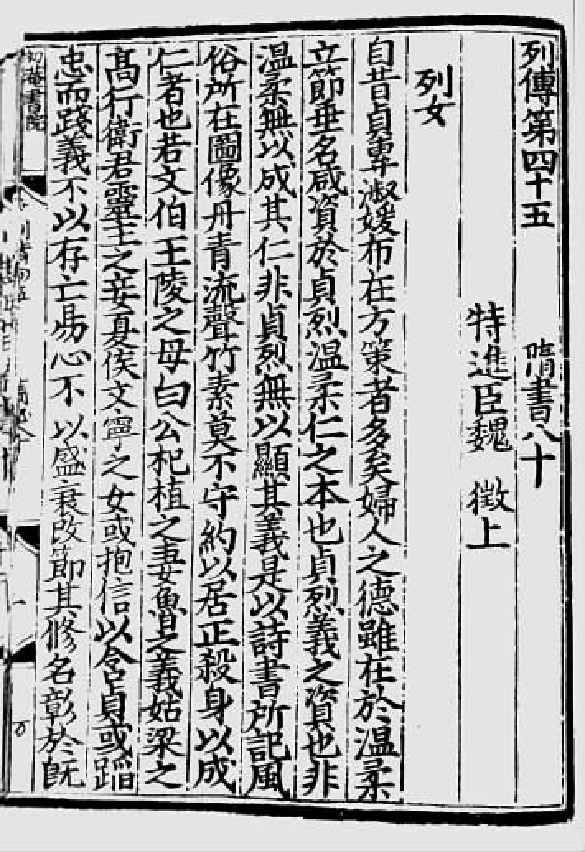 列傳第四十五　隋書八十
特進臣魏　徵上
列女
自昔貞專淑媛布在方策者多矣婦人之德雖在於温柔
立節垂名咸資於貞烈温柔仁之本也貞烈義之資也非
温柔無以成其仁非貞烈無以顯其義是以詩書所記風
俗所在圖像丹青流聲竹素莫不守約以居正殺身以成
仁者也若文伯王陵之母白公杞植之妻魯之義姑梁之
高行衛君靈主之妾夏侯文寧之女或抱信以含貞或蹈
忠而踐義不以存亡易心不以盛衰改節其修名彰於既